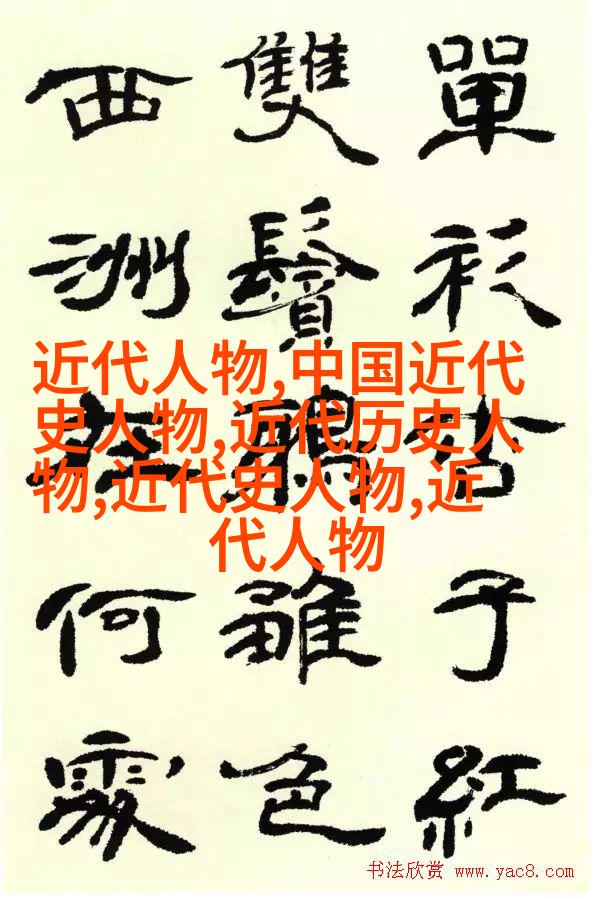 單衫杏子紅
雙鬢鴉雛色
西洲在何處
近代人物,中国近代
史人物,近代历史人
物,近代史人物,近
代人物
书法欣赏 www.yac8.com